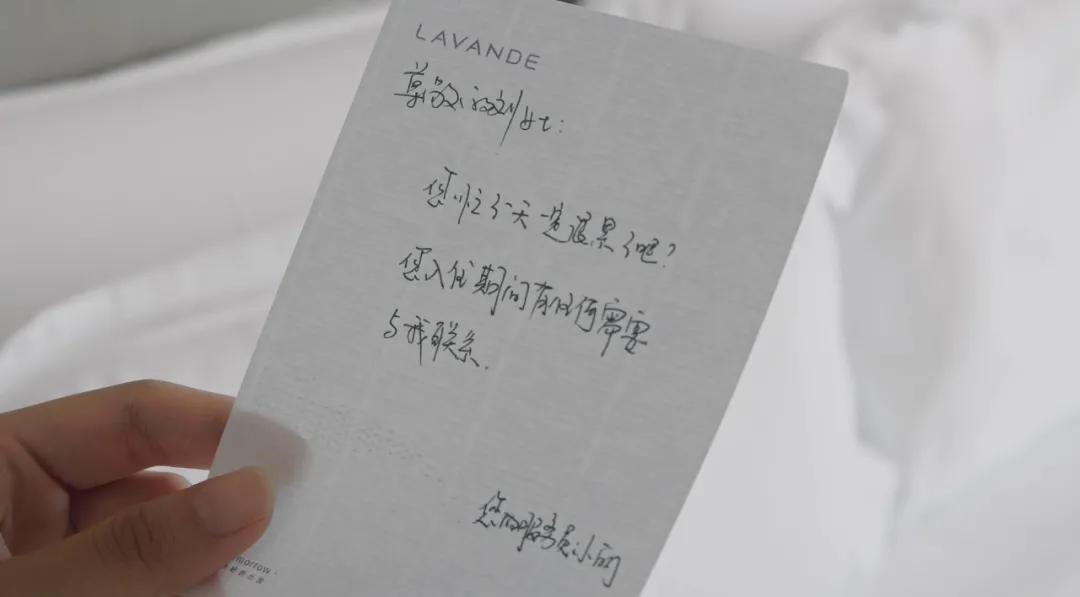 LAVANDE
尊敬的刘女士:
您忙了一天一定很累了吧?
您入住期间有任何需要
与我联系.
您的服务员小
morrow ·